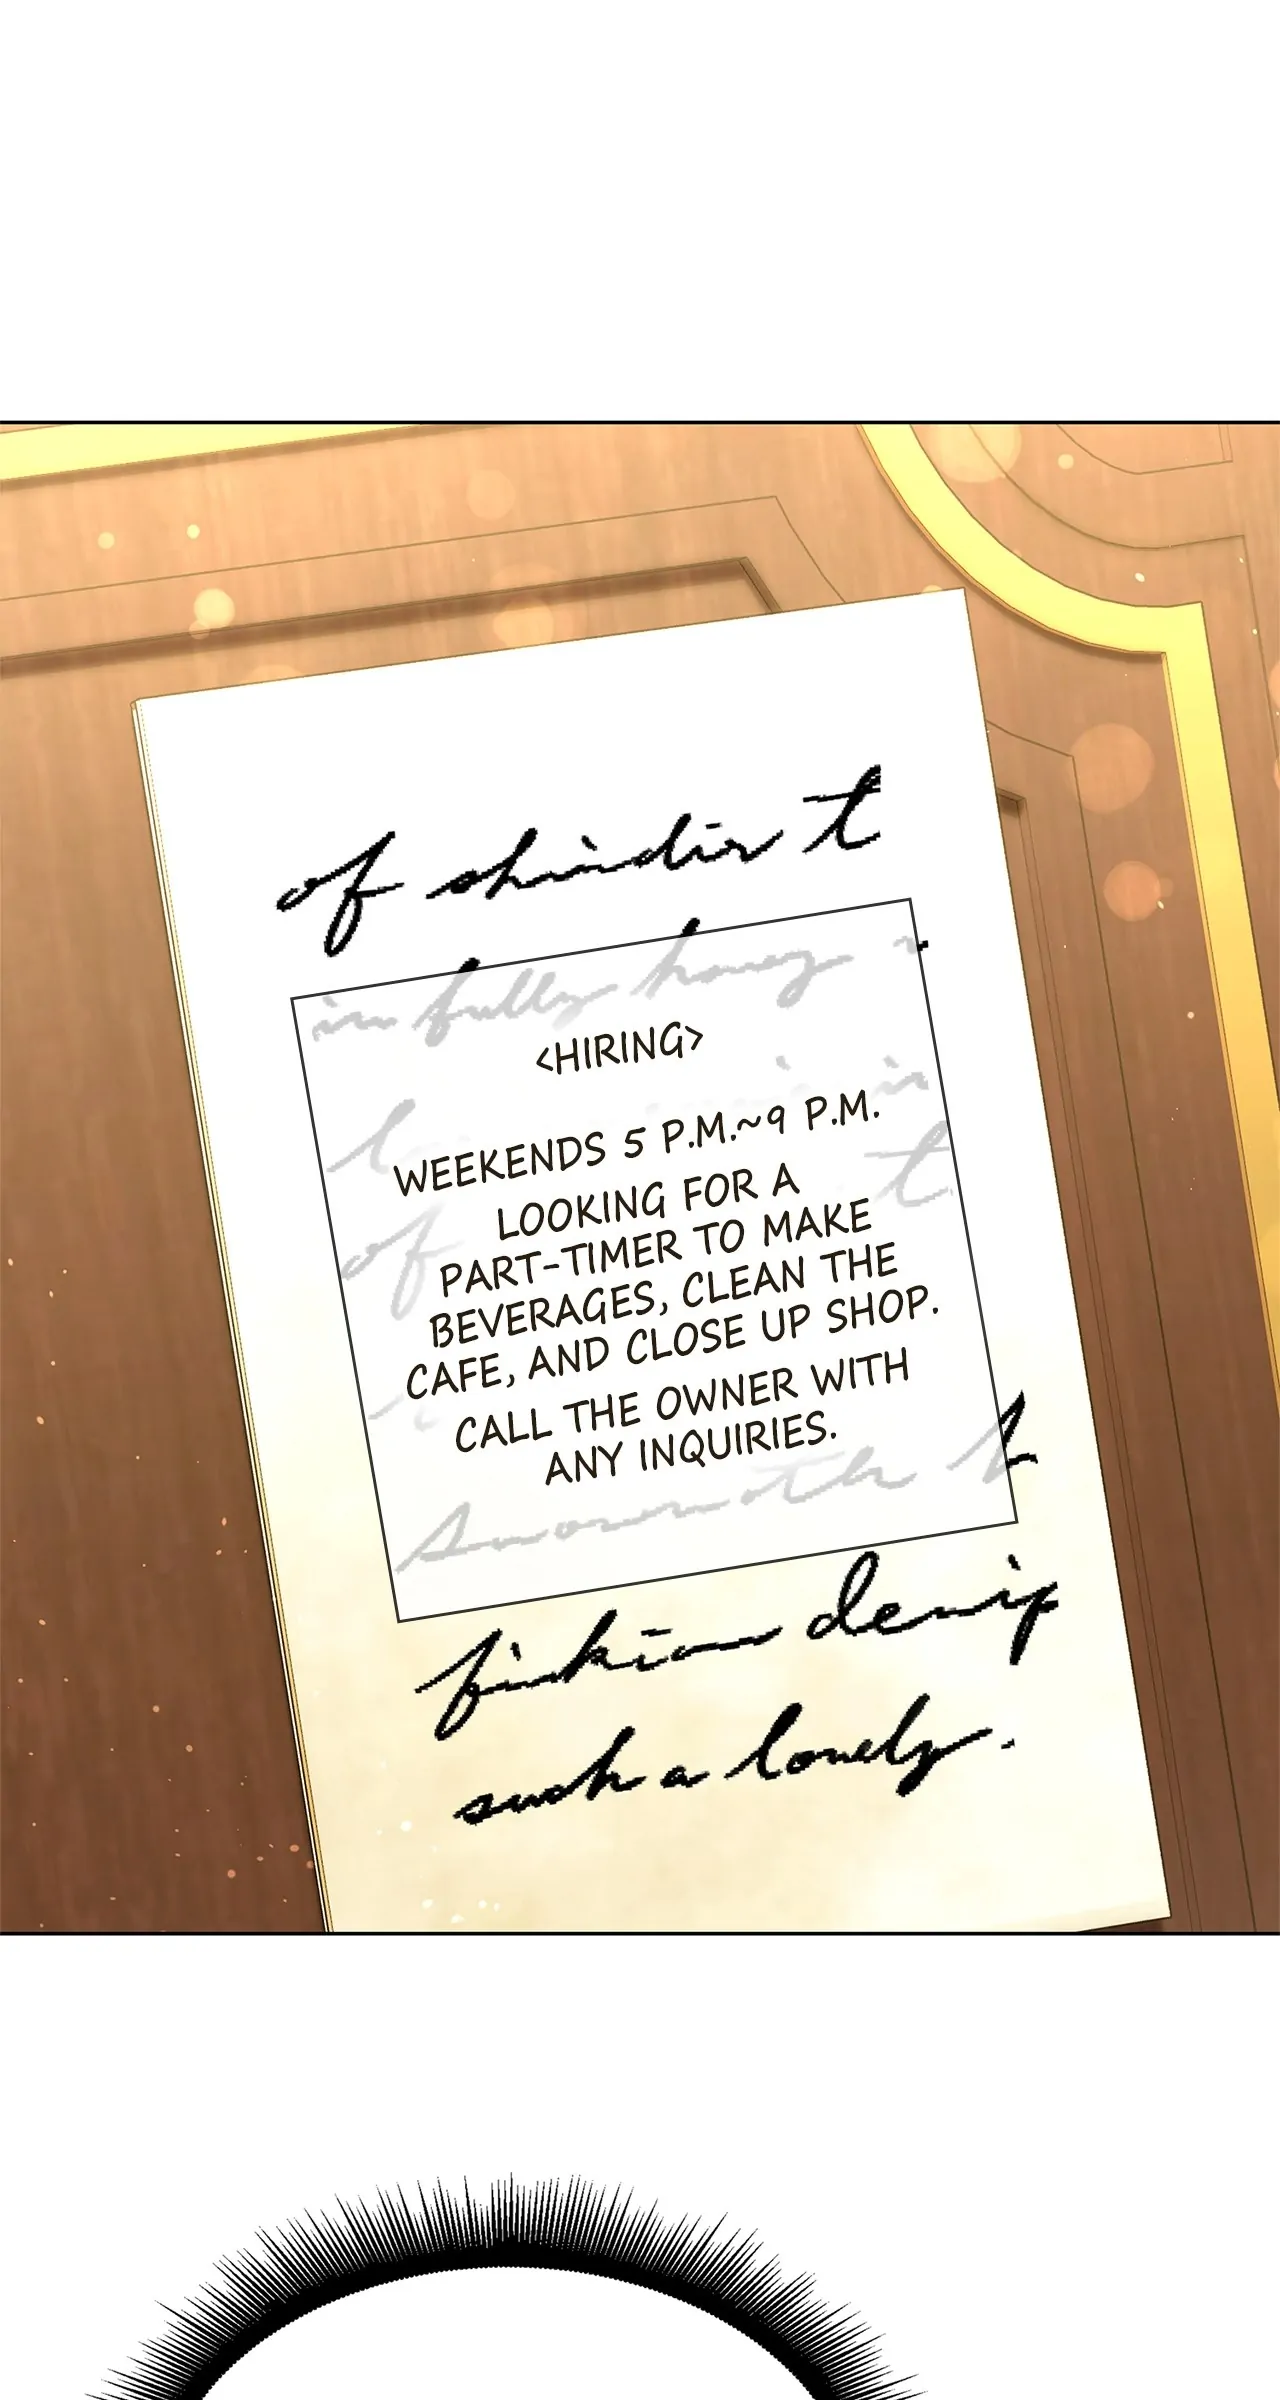 of t
in fully honey
<HIRING>
WEEKENDS 5 P.M.~9 P.M.
LOOKING FOR A
PART-TIMER TO MAKE
BEVERAGES, CLEAN THE
CAFE, AND CLOSE UP SHOP.
CALL THE OWNER WITH
ANY INQUIRIES.
such a lonely.